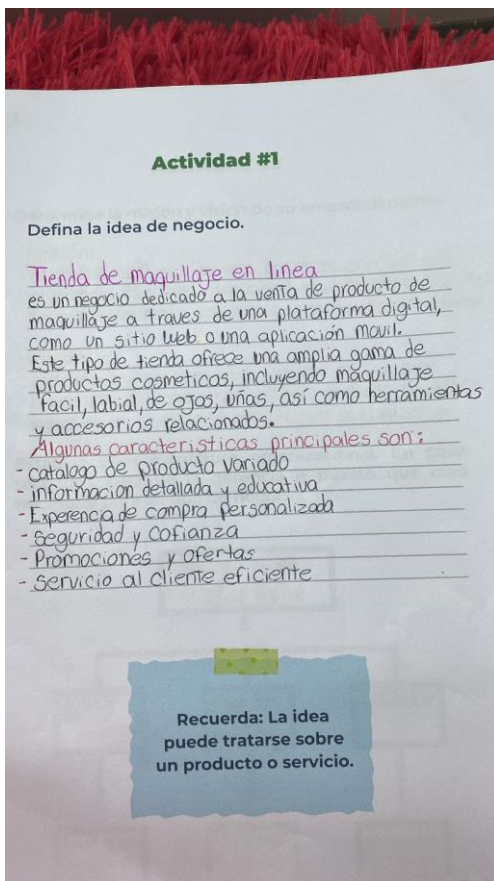 Actividad #1
Defina la idea de negocio.
Tienda de maquillaje en linea
es un negocio dedicado a la venta de producto de
maquillaje a traves de una plataforma digital,
como un sitio web o una aplicación movil.
Este tipo de tienda ofrece una amplia gama de
productos cosmeticos, incluyendo maquillaje
facil, labial, de ojos, uñas, así como herramientas
y accesorios relacionados.
Algunas caracteristicas principales son:
- catalogo de producto variado
- informacion detallada y educativa
- Experencia de compra personalizada
- Seguridad y cofianza
- Promociones y ofertas
- servicio al cliente eficiente
Recuerda: La idea
puede tratarse sobre
un producto o servicio.